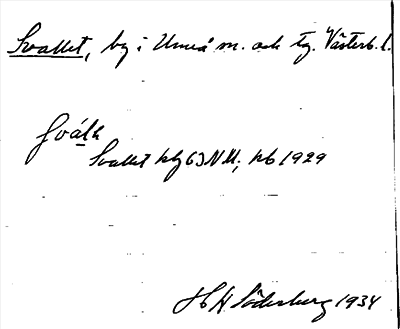 Svallet, by i Umeå m. och tg. Västerb. l.
Svallet kbl 63 NU, kb 1929
H Söderberg 1934